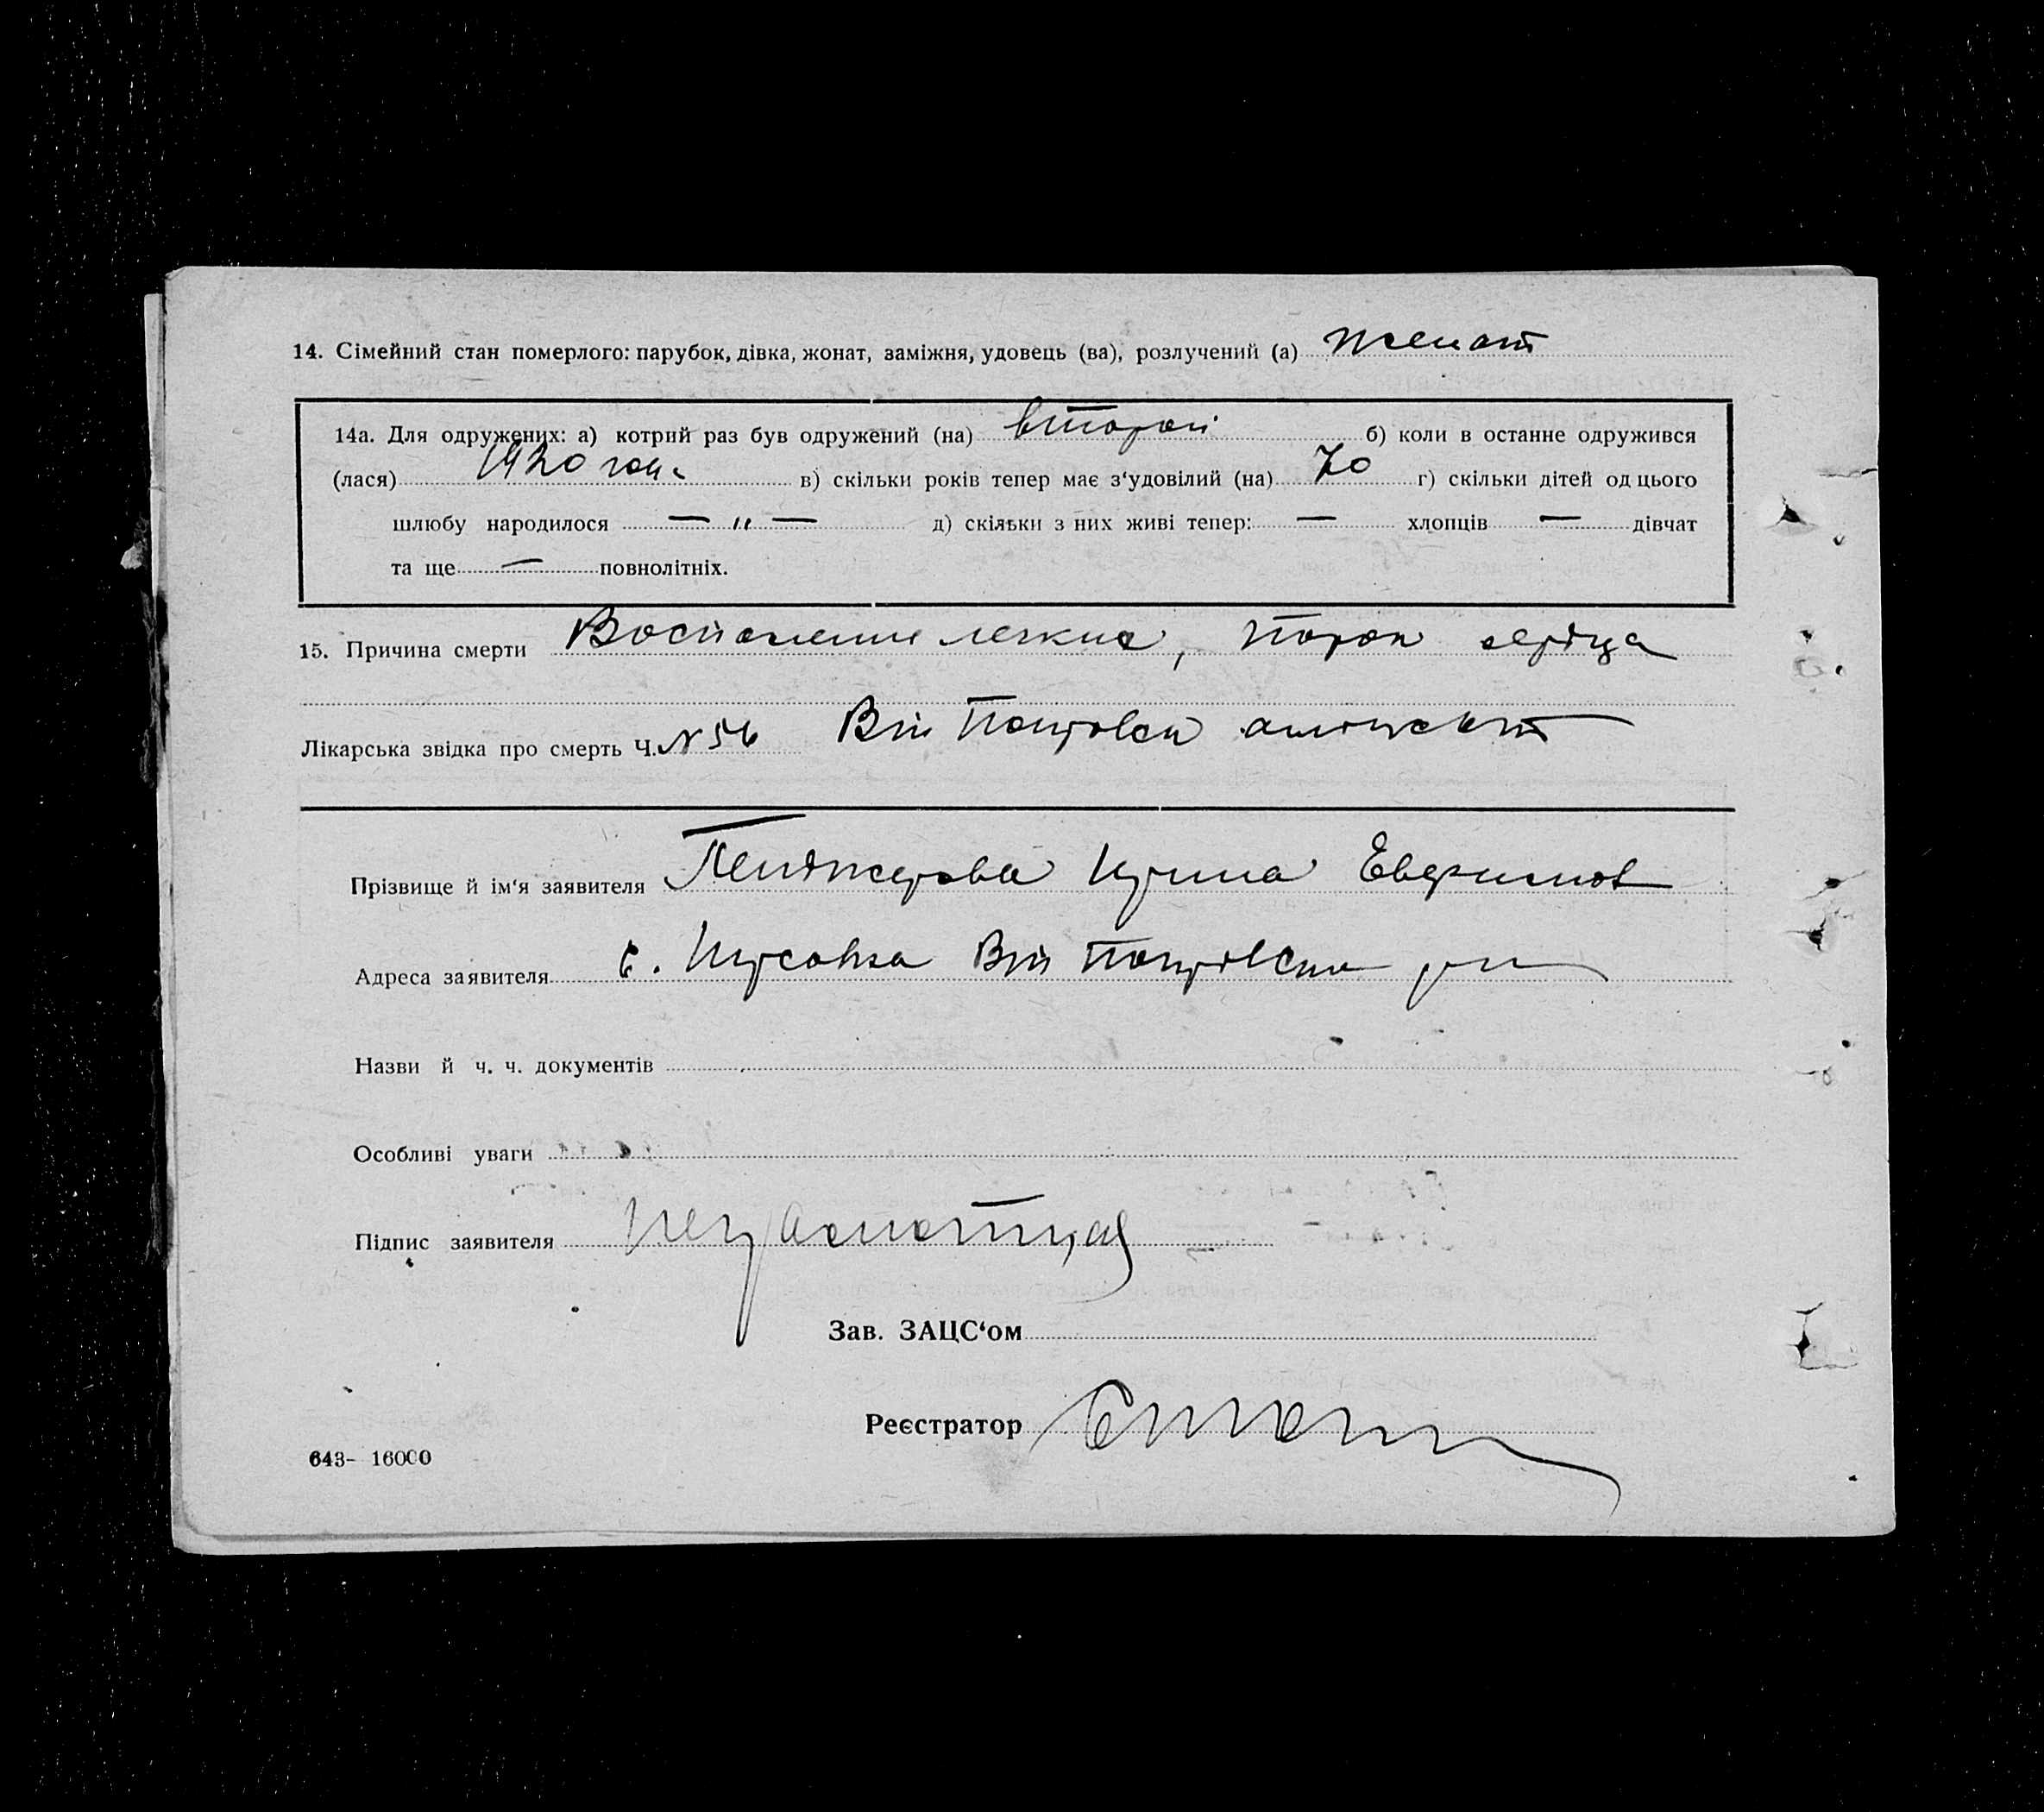 14. Сімейний стан померлого: парубок, дівка, жонат, заміжня, удовець (ва), розлучений (а) женат
14а. Для одружених: а) котрий раз був одружений (на) второй б) коли в останнє одружився
(лася) 1920 году в) скільки років тепер має з‘удовілий (на) 70 г) скільки дітей од цього
шлюбу народилося — „ — д) скільки з них живі тепер: — хлопців — дівчат
та ще — повнолітніх.
15. Причина смерти Воспаление легких, порок сердца
Лікарська звідка про смерть Ч. N 56
Прізвище й ім‘я заявителя Пенджерова Ирина Евфимов
Адреса заявителя с.
Назви й ч. ч. документів
Особливі уваги
Підпис заявителя неграмотная
Зав. ЗАЦС‘ом
Реєстратор
643- 16000